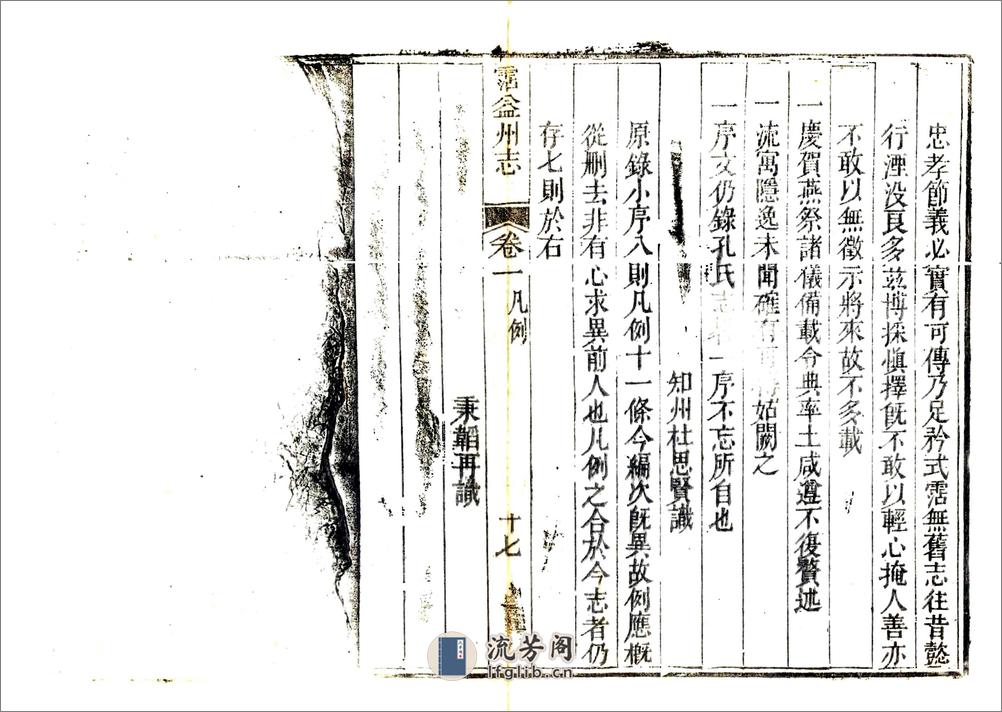 忠孝節義必實有可傳乃足矜式霑無舊志往昔懿
行湮没良多兹博採慎擇旣不敢以輕心掩人善亦
不敢以無徵示將來故不多載
一慶賀燕祭諸儀備載令典率土咸遵不復贅述
一流寓隱逸未聞確 姑闕之
一序文仍錄孔氏 一序不忘所自也
知州杜思賢識
原錄小序八則凡例十一條今編次旣異故例應概
從删去非有心求異前人也凡例之合於今志者仍
存七則於右
秉韜再識
霑益州志
卷一
凡例
十七
流芳阁
lfglib.cn